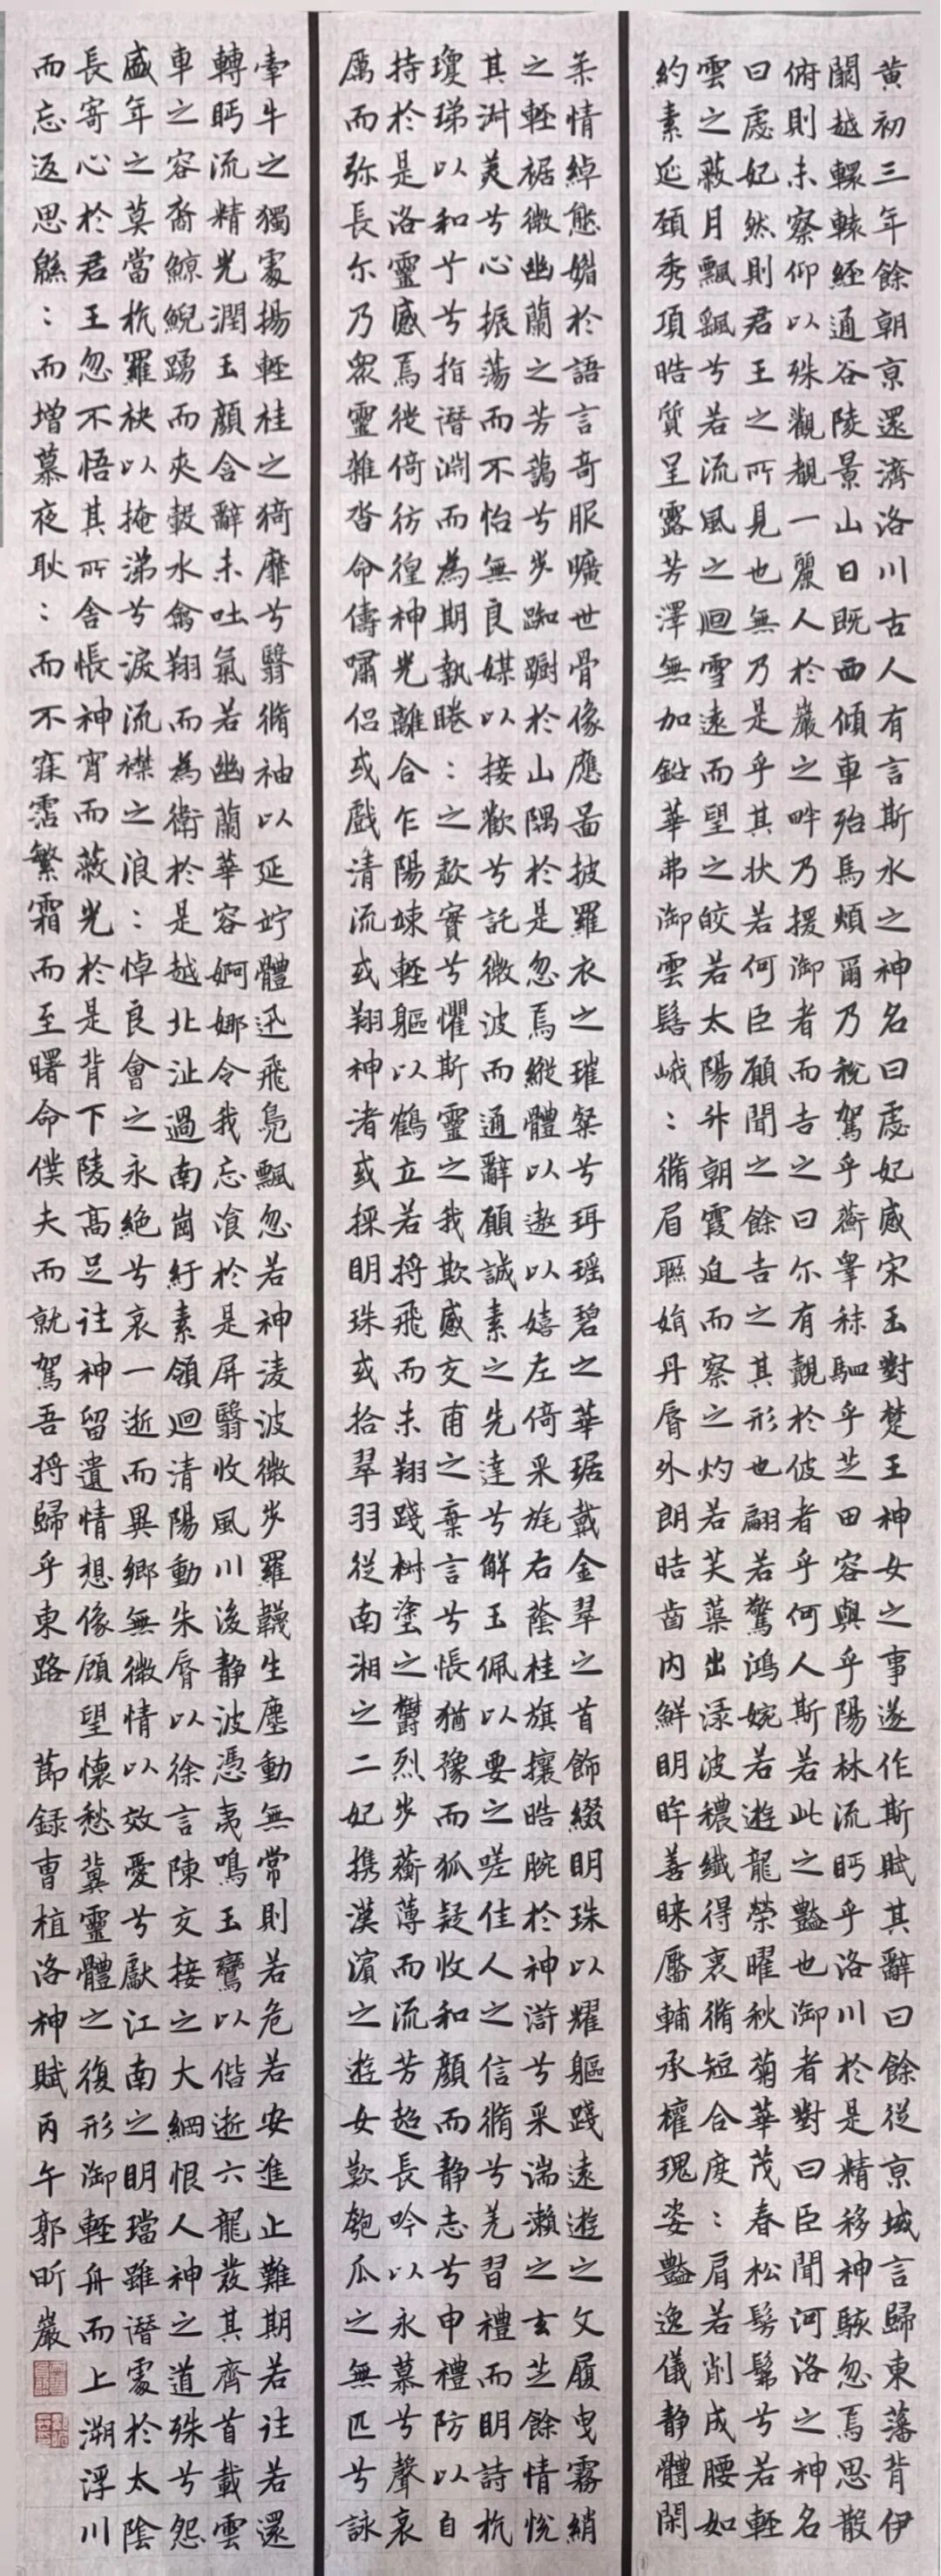 黄初三年餘朝京還濟洛川古人有言斯水之神名曰處妃感宋玉對楚王神女之事遂作斯賦其辭曰餘從京域言歸東藩背伊
闕越轘轅經通谷陵景山日既西傾車殆馬煩爾乃稅駕乎蘅皋秣駟乎芝田容與乎陽林流眄乎洛川於是精移神駭忽焉思散
俯則未察仰以殊觀覩一麗人於巖之畔乃援御者而告之曰尔有覿於彼者乎何人斯若此之豔也御者對曰臣聞河洛之神名
曰處妃然則君王之所見也無乃是乎其狀若何臣願聞之餘告之其形也翩若驚鴻婉若遊龍榮曜秋菊華茂春松髣髴兮若輕
雲之蔽月飄飖兮若流風之迴雪遠而望之皎若太陽升朝霞迫而察之灼若芙蕖出渌波穠纖得衷脩短合度：肩若削成腰如
約素延頸秀項皓質呈露芳澤無加鉛華弗御雲髻峨：脩眉聯娟丹脣外朗皓齒內鮮明眸善睞靨輔承權瑰姿豔逸儀靜體閑
柔情綽態媚於語言奇服曠世骨像應圖披羅衣之璀粲兮珥瑤碧之華琚戴金翠之首飾綴明珠以耀軀踐遠遊之文履曳霧綃
之輕裾微幽蘭之芳藹兮步踟躕於山隅於是忽焉縱體以遨以嬉左倚采旄右蔭桂旗攘皓腕於神滸兮采湍瀨之玄芝餘情悅
其淑美兮心振蕩而不怡無良媒以接歡兮託微波而通辭願誠素之先達兮解玉佩以要之嗟佳人之信脩兮羌習禮而明詩抗
瓊珶以和于兮指潛淵而為期執睠：之款實兮懼斯靈之我欺感交甫之棄言兮悵猶豫而狐疑收和顏而靜志兮申禮防以自
持於是洛靈感焉徙倚彷徨神光離合乍陽竦輕軀以鶴立若將飛而未翔踐樹塗之鬱烈步蘅薄而流芳超長吟以永慕兮聲哀
厲而弥長尔乃眾靈雜沓命儔嘯侶或戲清流或翔神渚或採明珠或拾翠羽從南湘之二妃携漢濱之遊女歎匏瓜之無匹兮詠
牽牛之獨處揚輕桂之猗靡兮翳脩袖以延竚體迅飛鳧飄忽若神淩波微步羅韈生塵動無常則若危若安進止難期若往若還
轉眄流精光潤玉顏含辭未吐氣若幽蘭華容婀娜令我忘飡於是屏翳收風川後靜波憑夷鳴玉鸞以偕逝六龍其齊首載雲
車之容裔鯨鯢踴而夾轂水禽翔而為衛於是越北沚過南崗紆素領迴清陽動朱脣以徐言陳交接之大綱恨人神之道殊兮怨
盛年之莫當杭羅袂以掩涕兮淚流襟之浪：悼良會之永絕兮哀一逝而異鄉無微情以效愛兮獻江南之明璫雖潛處於太陰
長寄心於君王忽不悟其所舍悵神宵而蔽光於是背下陵高足往神留遺情想像顧望懷愁冀靈體之復形御輕舟而上溯浮川
而忘返思緜：而增慕夜耿：而不寐霑繁霜而至曙命僕夫而就駕吾將歸乎東路 節録曹植洛神賦丙午郭昕巖